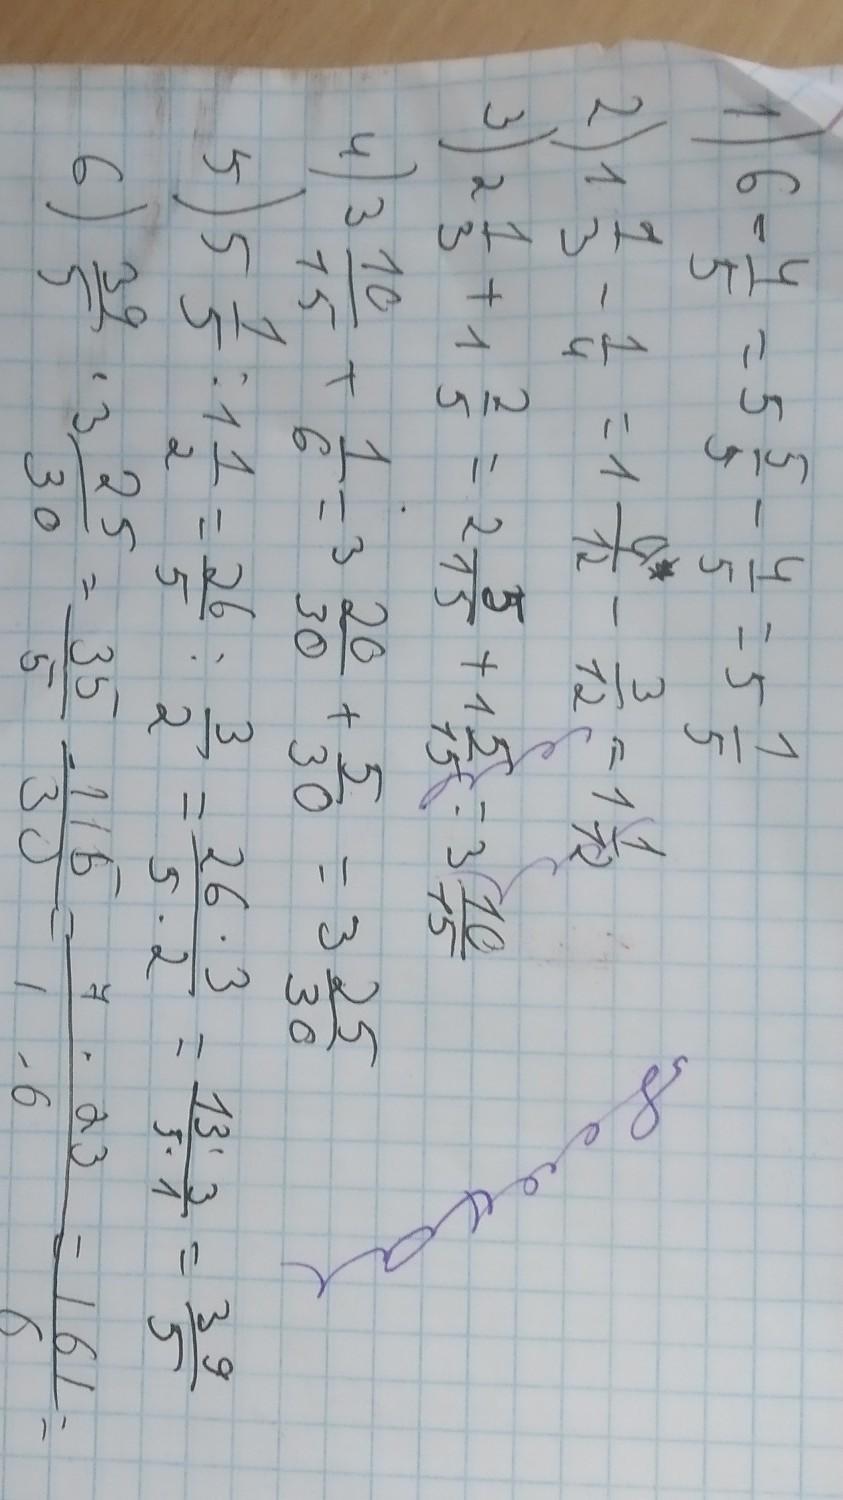 1) 6 - 4/5 = 5 5/5 - 4/5 = 5 1/5
2) 1 1/3 - 1/4 = 1 4/12 - 3/12 = 1 1/12
3) 2 1/3 + 1 2/5 = 2 5/15 + 1 5/15 = 3 10/15
4) 3 10/15 + 1/6 = 3 20/30 + 5/30 = 3 25/30
5) 5 1/5 : 1 1/2 = 26/5 : 3/2 = 26·3/5·2 = 13·3/5·1 = 39/5
6) 39/5 · 3 25/30 = 35/5 · 115/30 = 7·23/1·6 = 161/6 =